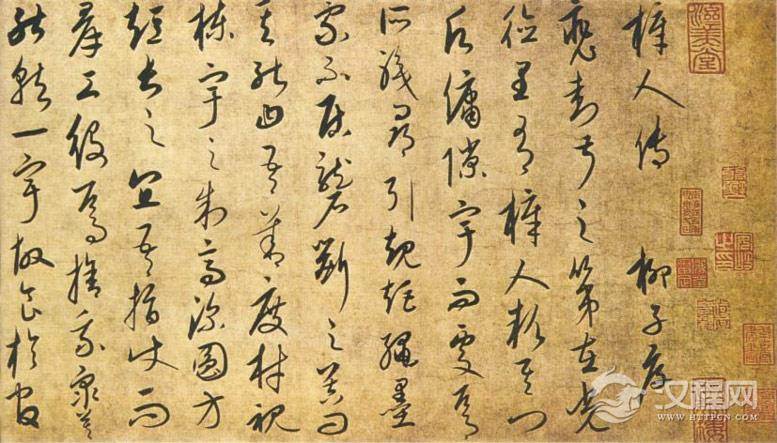 梓人传 柳子厚
裴封叔之第在光
德里有梓人款其门
傭隙宇而處焉
所職尋引規矩繩墨
家不居礱斲之器問
其能曰吾善度材視
棟宇之制高深圓方
短長之宜吾指使而
群工役焉捨我衆莫
能就一宇故食於官
汉程网
WWW.HTTPCN.COM